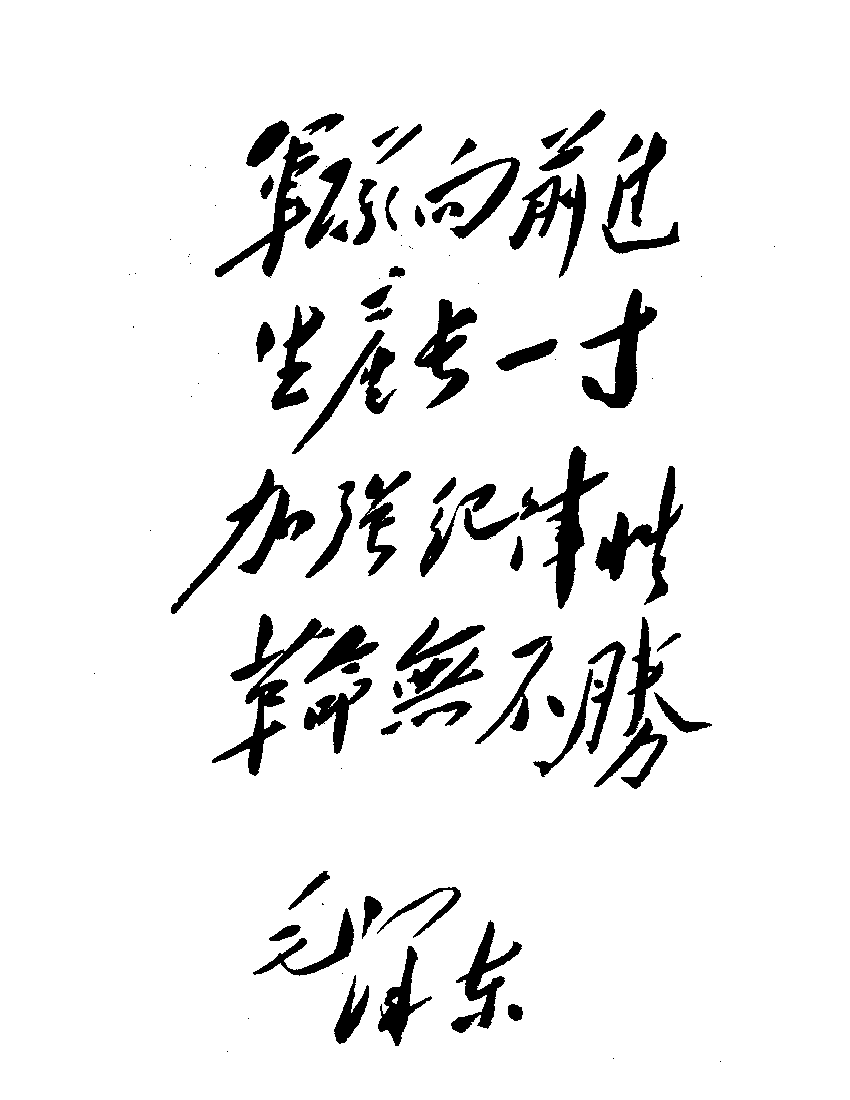 軍隊向前進
生產長一寸
加強紀律性
革命無不勝
毛泽东